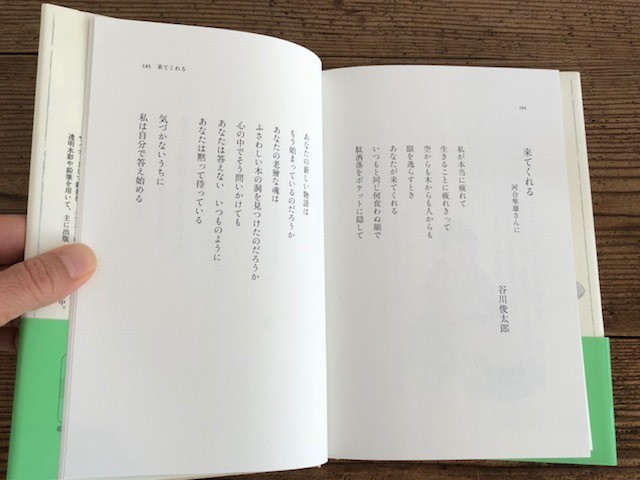 184
来てくれる
河合隼雄さんに
谷川俊太郎
私が本当に疲れて
生きることに疲れきって
空からも木からも人からも
眼を逸らすとき
あなたが来てくれる
いつもと同じ何食わぬ顔で
駄洒落をポケットに隠して
185 来てくれる
あなたの新しい物語は
もう始まっているのだろうか
あなたの老獪な魂は
ふさわしい木の洞を見つけたのだろうか
心の中でそう問いかけても
あなたは答えない いつものように
あなたは黙って待っている
気づかないうちに
私は自分で答え始める
透明水彩や鉛筆を用いて、主に出版
中。